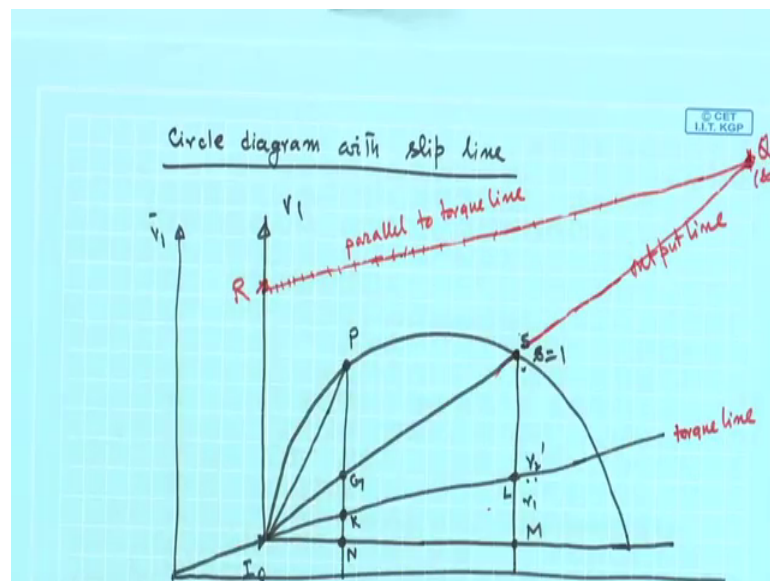 © CET
I.I.T. KGP
Circle diagram with slip line
Q
V̄₁
V₁
parallel to torque line
output line
R
P
S
s=1
torque line
G
r₂'
L
r₁
K
N
M
I₀